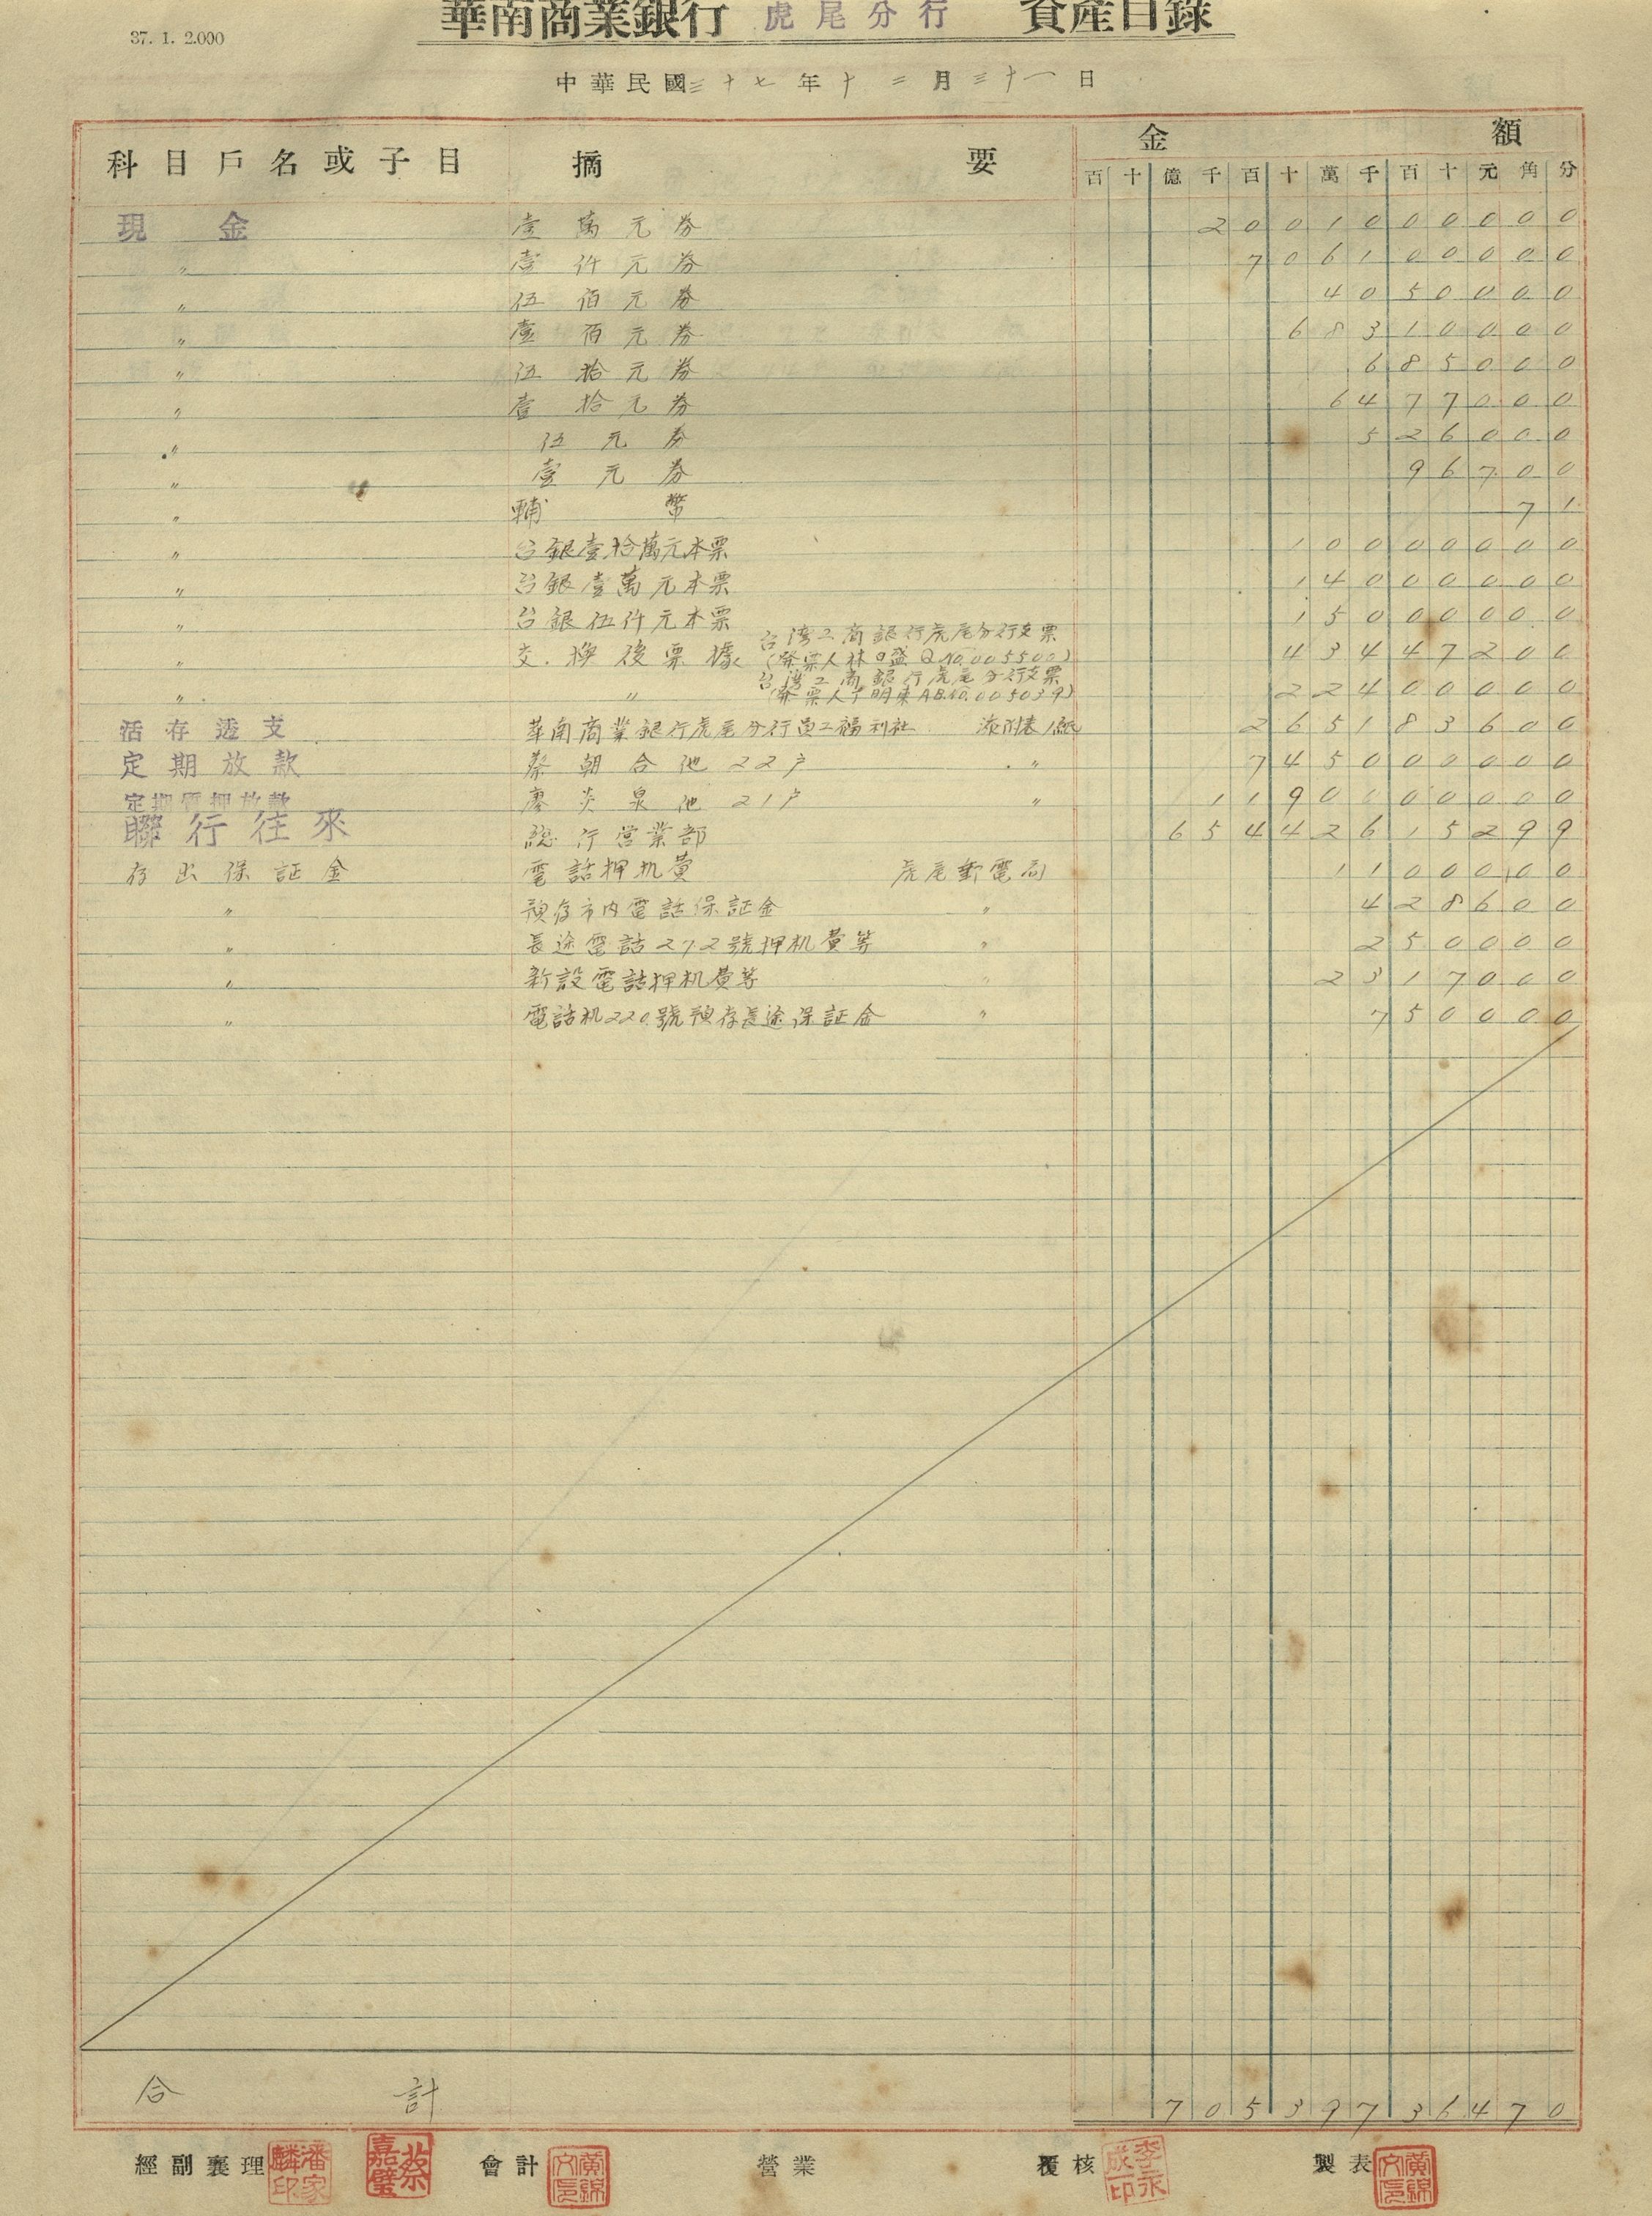 37. 1. 2.000
華南商業銀行 虎尾分行 資產目錄
中華民國三十七年十二月三十一日
科目戶名或子目 摘要 金額
百十億千百十萬千百十元角分
現金 壹萬元券 200100000000
〃 壹仟元券 706100000
〃 伍佰元券 4050000
〃 壹佰元券 68310000
〃 伍拾元券 685000
〃 壹拾元券 6477000
〃 伍元券 526000
〃 壹元券 96700
〃 輔幣 71
〃 台銀壹拾萬元本票 10000000
〃 台銀壹萬元本票 14000000
〃 台銀伍仟元本票 15000000
〃 交換後票據 台灣工商銀行虎尾分行支票 43447200
(發票人林 盛 Q No.005500)
〃 〃 台灣工商銀行虎尾分行支票 22400000
(發票人丁明來 AB.No.005039)
活存透支 華南商業銀行虎尾分行員工福利社 添附表1紙 265183600
定期放款 蔡朝合他22戶 〃 745000000
定期質押放款 廖炎泉他21戶 〃 1190000000
聯行往來 總行営業部 65442615299
存出保証金 電話押机費 虎尾郵電局 1100000
〃 預存市内電話保証金 〃 428600
〃 長途電話272號押机費等 〃 250000
〃 新設電話押机費等 〃 2317000
〃 電話机220號預存長途保証金 〃 750000
合計 70539736470
經副襄理 潘家麟印 蔡嘉璧 會計 黃錦文印 營業 覆核 李永成印 製表 黃錦文印